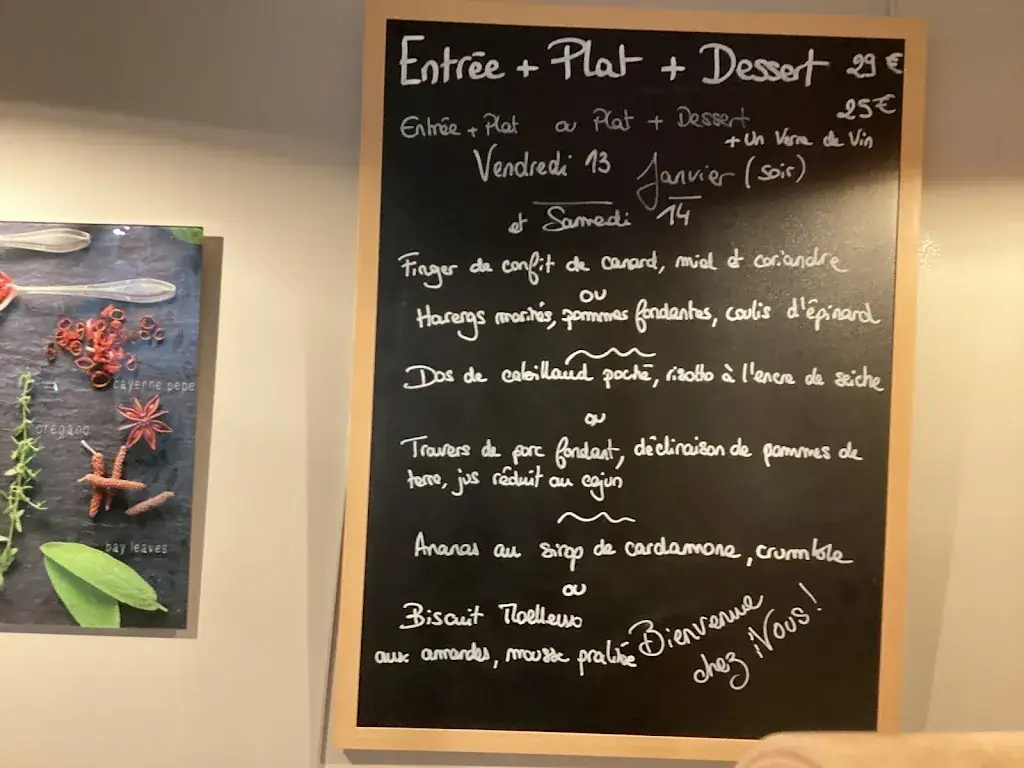 Entrée + Plat + Dessert 29 €
25€
Entrée + Plat ou Plat + Dessert
+ Un Verre de Vin
Vendredi 13 Janvier (soir)
et Samedi 14
Finger de confit de canard, miel et coriandre
ou
Harengs marinés, pommes fondantes, coulis d'épinard
Dos de cabillaud poché, risotto à l'encre de seiche
ou
Travers de porc fondant, déclinaison de pommes de
terre, jus réduit au cajun
Ananas au sirop de cardamone, crumble
ou
Biscuit Moelleux
aux amandes, mousse pralinée
Bienvenue
chez Nous !
cayenne pepe
oregano
bay leaves